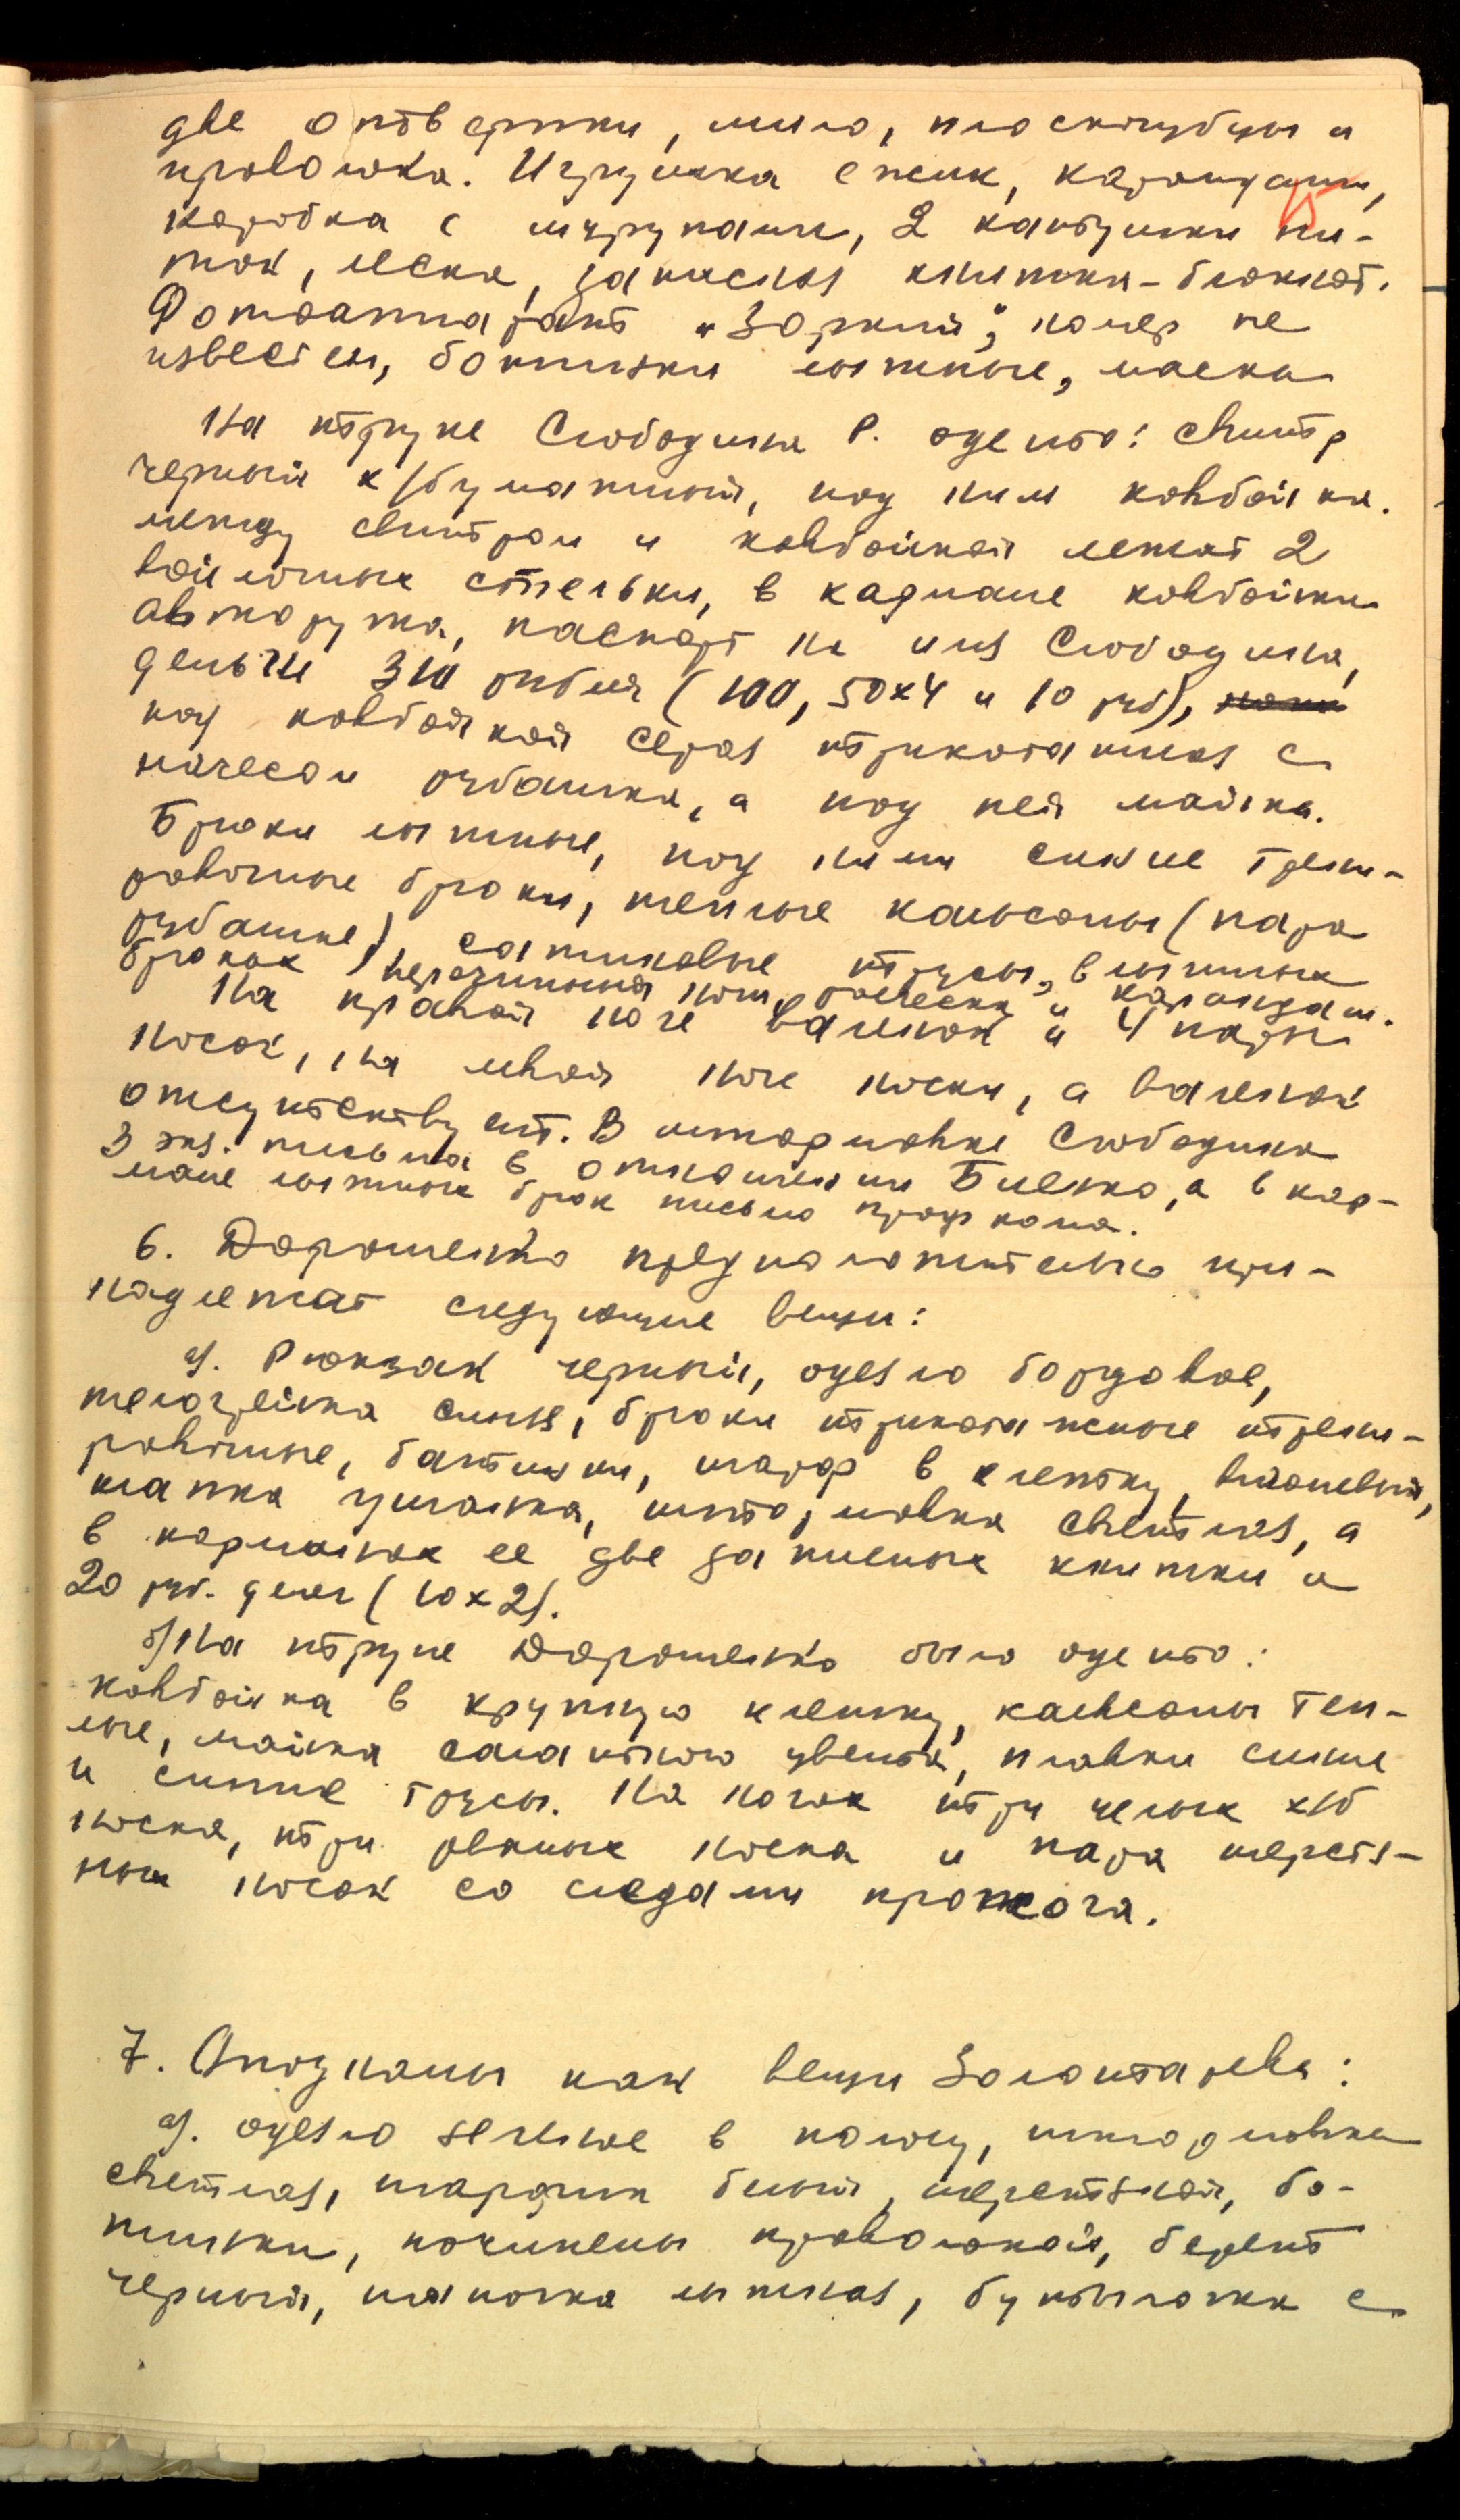 две отвертки, мыло, плоскогубцы и
проволока. Игрушка ежик, карандаш,
коробка с шурупами, 2 катушки ни-
ток, леска, записная книжка-блокнот.
Фотоаппарат "Зоркий", номер не
известен, ботинки лыжные, маска
На трупе Слободина Р. одето: свитр
черный х/бумажный, под ним ковбойка.
между свитром и ковбойкой лежат 2
войлочных стельки, в кармане ковбойки
авторучка, паспорт на имя Слободина,
деньги 310 рублей (100, 50х4 и 10 руб),
под ковбойкой серая трикотажная с
начесом рубашка, а под ней майка.
Брюки лыжные, под ними синие трени-
ровочные брюки, теплые кальсоны (пара
рубашке), сатиновые трусы, в лыжных
брюках перочинный нож, расческа и карандаш.
На правой ноге валенок и 4 пары
носок, на левой ноге носки, а валенок
отсутствует. В штормовке Слободина
3 экз. письма в отношении Биенко, а в кар-
мане лыжных брюк письмо профкома.
6. Дорошенко предположительно при-
надлежат следующие вещи:
а). Рюкзак черный, одеяло бордовое,
телогрейка синяя, брюки трикотажные трени-
ровочные, ботинки, шарф в клетку, вишневый,
шапка ушанка, штормовка светлая, а
в карманах ее две записных книжки и
20 руб. денег (10х2).
б) На трупе Дорошенко было одето:
ковбойка в крупную клетку, кальсоны теп-
лые, майка салатного цвета, плавки синие
и синие трусы. На ногах три целых х/б
носка, три рваных носка и пара шерстя-
ных носок со следами прожога.
7. Опознаны как вещи Золотарева:
а). одеяло зеленое в полосу, штормовка
светлая, шарфик белый, шерстяной, бо-
тинки, починены проволокой, берет
черный, шапочка лыжная, бутылочка с